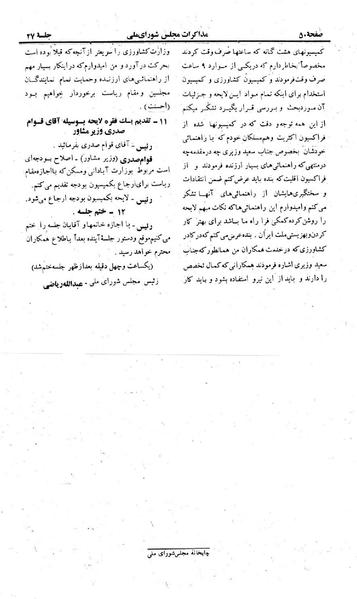 صفحهٔ ۵۰
مذاکرات مجلس شورای‌ملی
جلسهٔ ۲۷
کمیسیونهای هشت گانه که ساعتها صرف وقت کردند
مخصوصاً بخاطر دارم که در یکی از موارد ۹ ساعت
صرف وقت فرمودند و کمیسیون کشاورزی و کمیسیون
استخدام برای اینکه تمام مواد این لایحه و جزئیات
آن مورد بحث و بررسی قرار بگیرد تشکر میکنم
از این همه توجه و دقت که در کمیسیونها شده از
فراکسیون اکثریت و هم‌مسلکان خودم که با راهنمائی
خودشان بخصوص جناب سعید وزیری چه در مقدمه چه
در متن چه که راهنمائی‌های بسیار ارزنده فرمودند از
فراکسیون اقلیت که بنده باید عرض کنم ضمن انتقادات
و سختگیری‌هایشان از راهنمائی‌های آنها تشکر
می کنم و امیدوارم این راهنمائی‌ها که نکات مهم لایحه
را روشن کرده کمکی فرا راه ما باشد برای بهتر کار
کردن و بهزیستی ملت ایران . بنده عرض می کنم که در کادر
کشاورزی که در خدمت همکاران من همانطور که جناب
سعید وزیری اشاره فرمودند همکارانی که کمال تخصص
را دارند و باید از این نیرو استفاده بشود و باید کار
وزارت کشاورزی را سریعتر از آنچه که قبلا بوده است
بحرکت درآورد و من امیدوارم که در اینکار بسیار مهم
از راهنمائی‌های ارزنده و حمایت تمام نمایندگان
مجلسین و مقام ریاست برخوردار باشیم
(احسنت) .
۱۱ – تقدیم یک فقره لایحه بوسیله آقای قوام
صدری وزیر مشاور
رئیس – آقای قوام صدری بفرمائید .
قوام صدری (وزیر مشاور) – اصلاح بودجه‌ای
است مربوط بوزارت آبادانی و مسکن که با اجازه مقام
ریاست برای ارجاع بکمیسیون بودجه تقدیم می کنم.
رئیس – لایحه بکمیسیون بودجه ارجاع می‌شود.
۱۲ – ختم جلسه .
رئیس – با اجازه خانمها و آقایان جلسه را ختم
می کنیم موقع و دستور جلسهٔ آینده بعداً باطلاع همکاران
محترم خواهد رسید .
(یکساعت و چهل دقیقه بعد از ظهر جلسه ختم شد)
رئیس مجلس شورای ملی – عبدالله ریاضی
چاپخانه مجلس شورای ملی